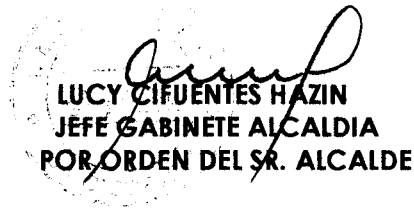 LUCY CIFUENTES HAZIN
JEFE GABINETE ALCALDIA
POR ORDEN DEL SR. ALCALDE